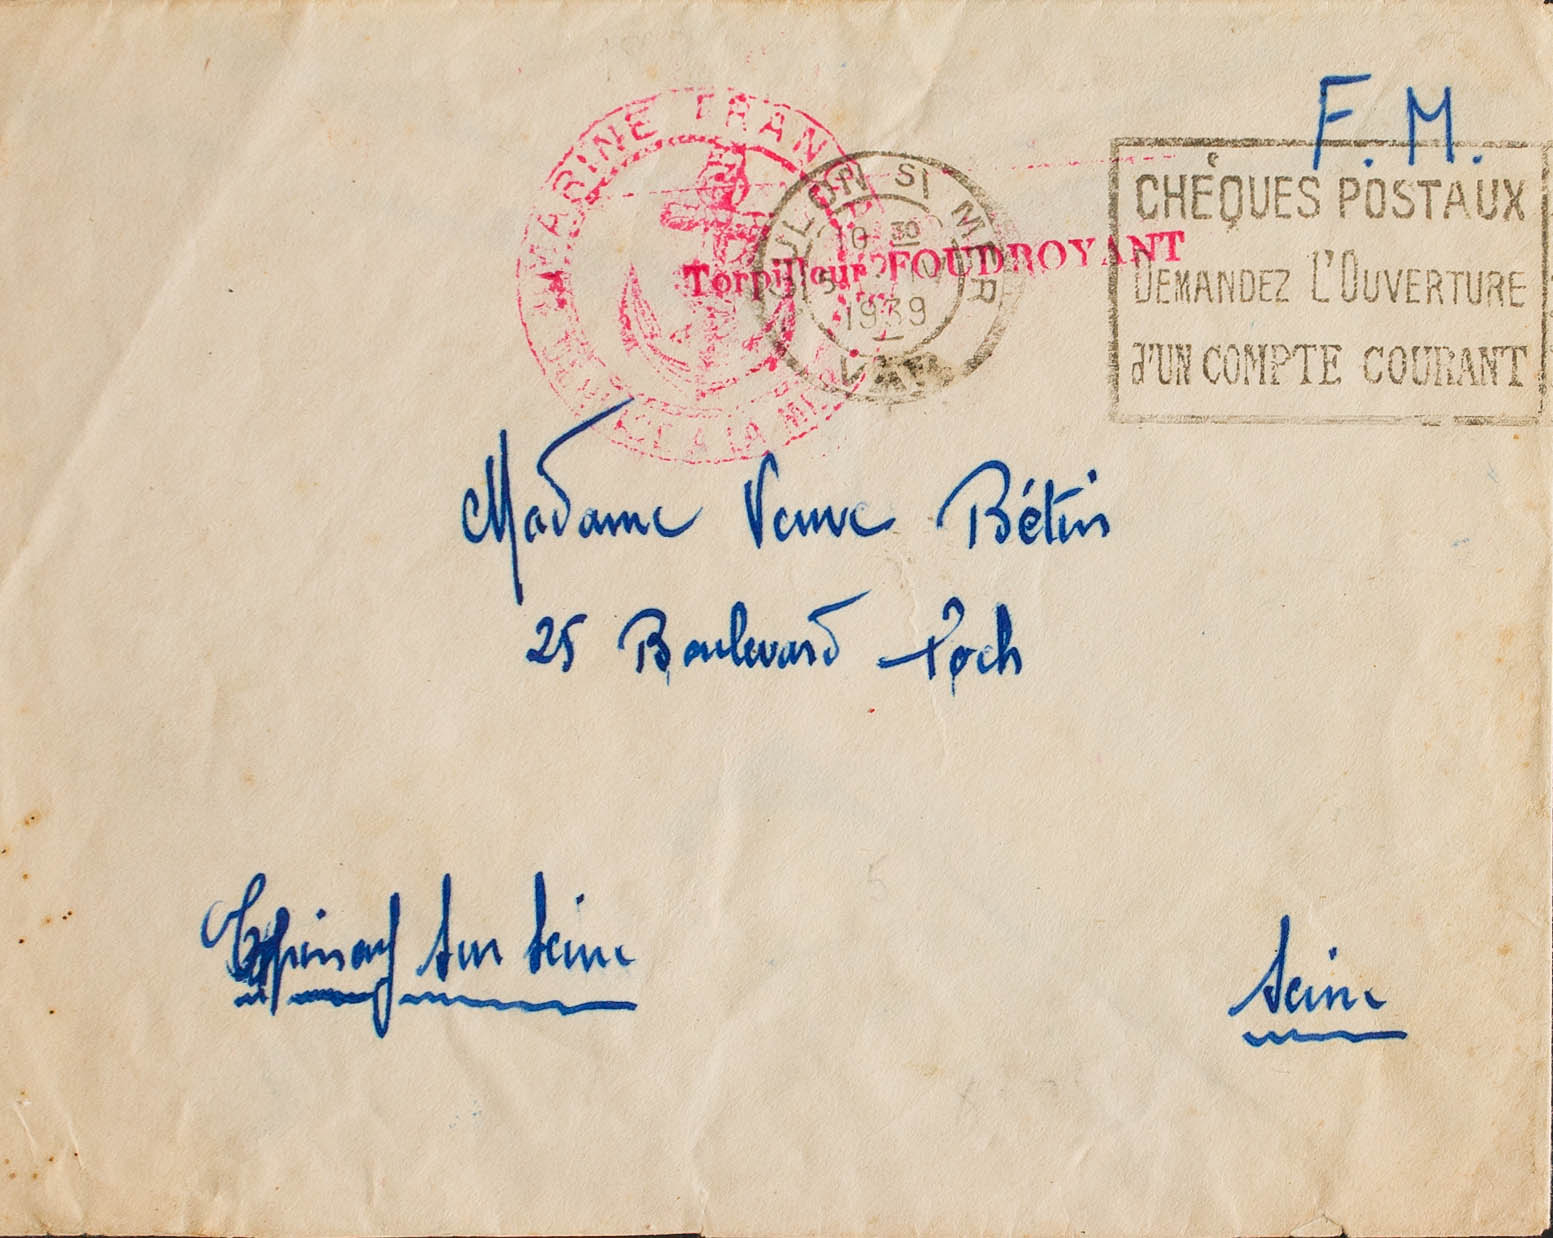 F.M.
MARINE FRAN
SERVICE A LA MER
TOULON SI MER
10 30
1939
VAR
Torpilleur FOUDROYANT
CHÈQUES POSTAUX
DEMANDEZ L'OUVERTURE
d'UN COMPTE COURANT
Madame Veuve Bétin
25 Boulevard Foch
Epinay sur Seine
Seine